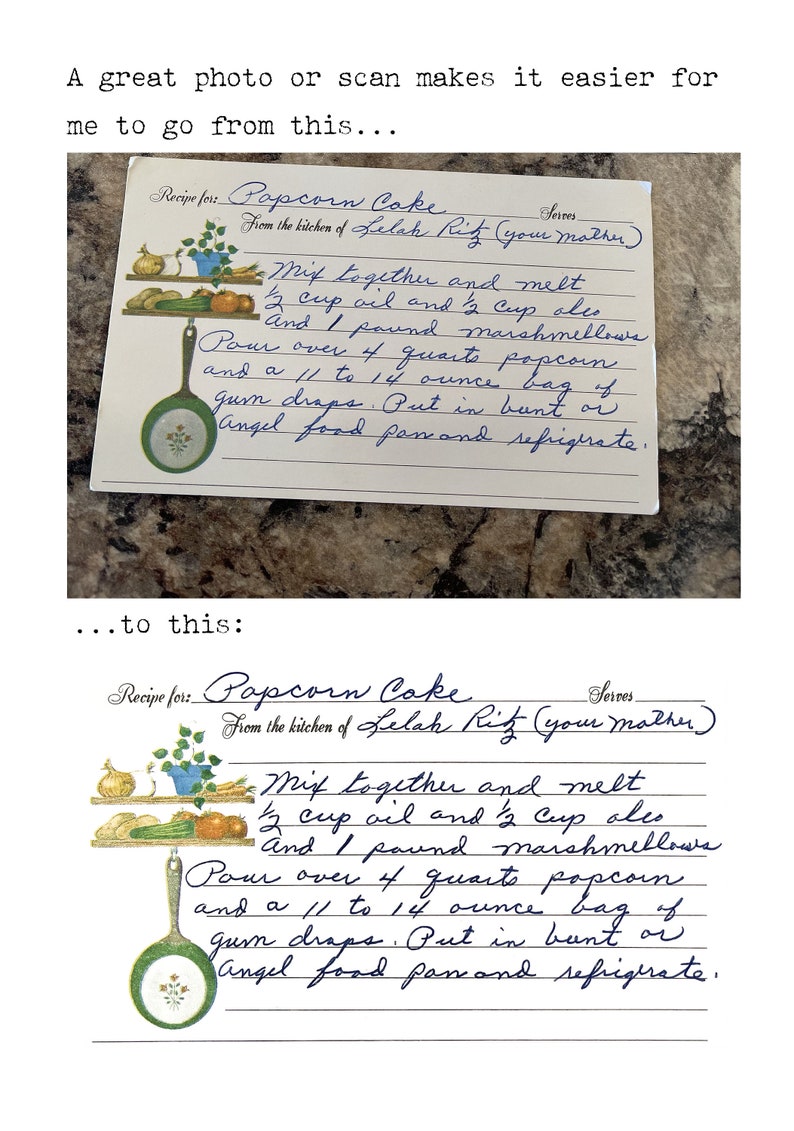 A great photo or scan makes it easier for
me to go from this...
Recipe for: Popcorn Cake Serves
From the kitchen of Lelah Ritz (your mother)
Mix together and melt
½ cup oil and ½ cup oleo
and 1 pound marshmellows
Pour over 4 quarts popcorn
and a 11 to 14 ounce bag of
gum drops. Put in bunt or
Angel food pan and refrigirate.
...to this:
Recipe for: Popcorn Cake Serves
From the kitchen of Lelah Ritz (your mother)
Mix together and melt
½ cup oil and ½ cup oleo
and 1 pound marshmellows
Pour over 4 quarts popcorn
and a 11 to 14 ounce bag of
gum drops. Put in bunt or
Angel food pan and refrigirate.